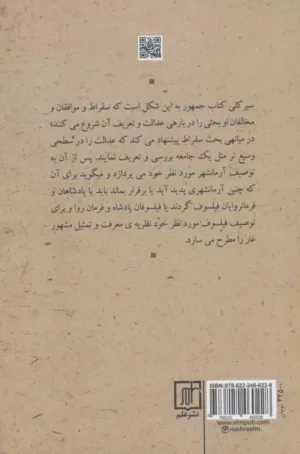 سیر کلی کتاب جمهور به این شکل است که سقراط و موافقان و
مخالفان او بحثی را در باره‌ی عدالت و تعریف آن شروع می کنند؛
در میانه‌ی بحث سقراط پیشنهاد می کند که عدالت را در سطحی
وسیع تر مثل یک جامعه بررسی و تعریف نمایند. پس از آن به
توصیف آرمانشهر مورد نظر خود می پردازد و میگوید برای آن
که چنین آرمانشهری پدید آید یا برقرار بماند باید یا پادشاهان و
فرمانروایان فیلسوف گردند یا فیلسوفان پادشاه و فرمان روا و برای
توصیف فیلسوف مورد نظر خود نظریه ی معرفت و تمثیل مشهور
غار را مطرح می سازد.
نشر علم
ISBN: 978-622-246-022-8
www.elmpub.com
@nashreelm